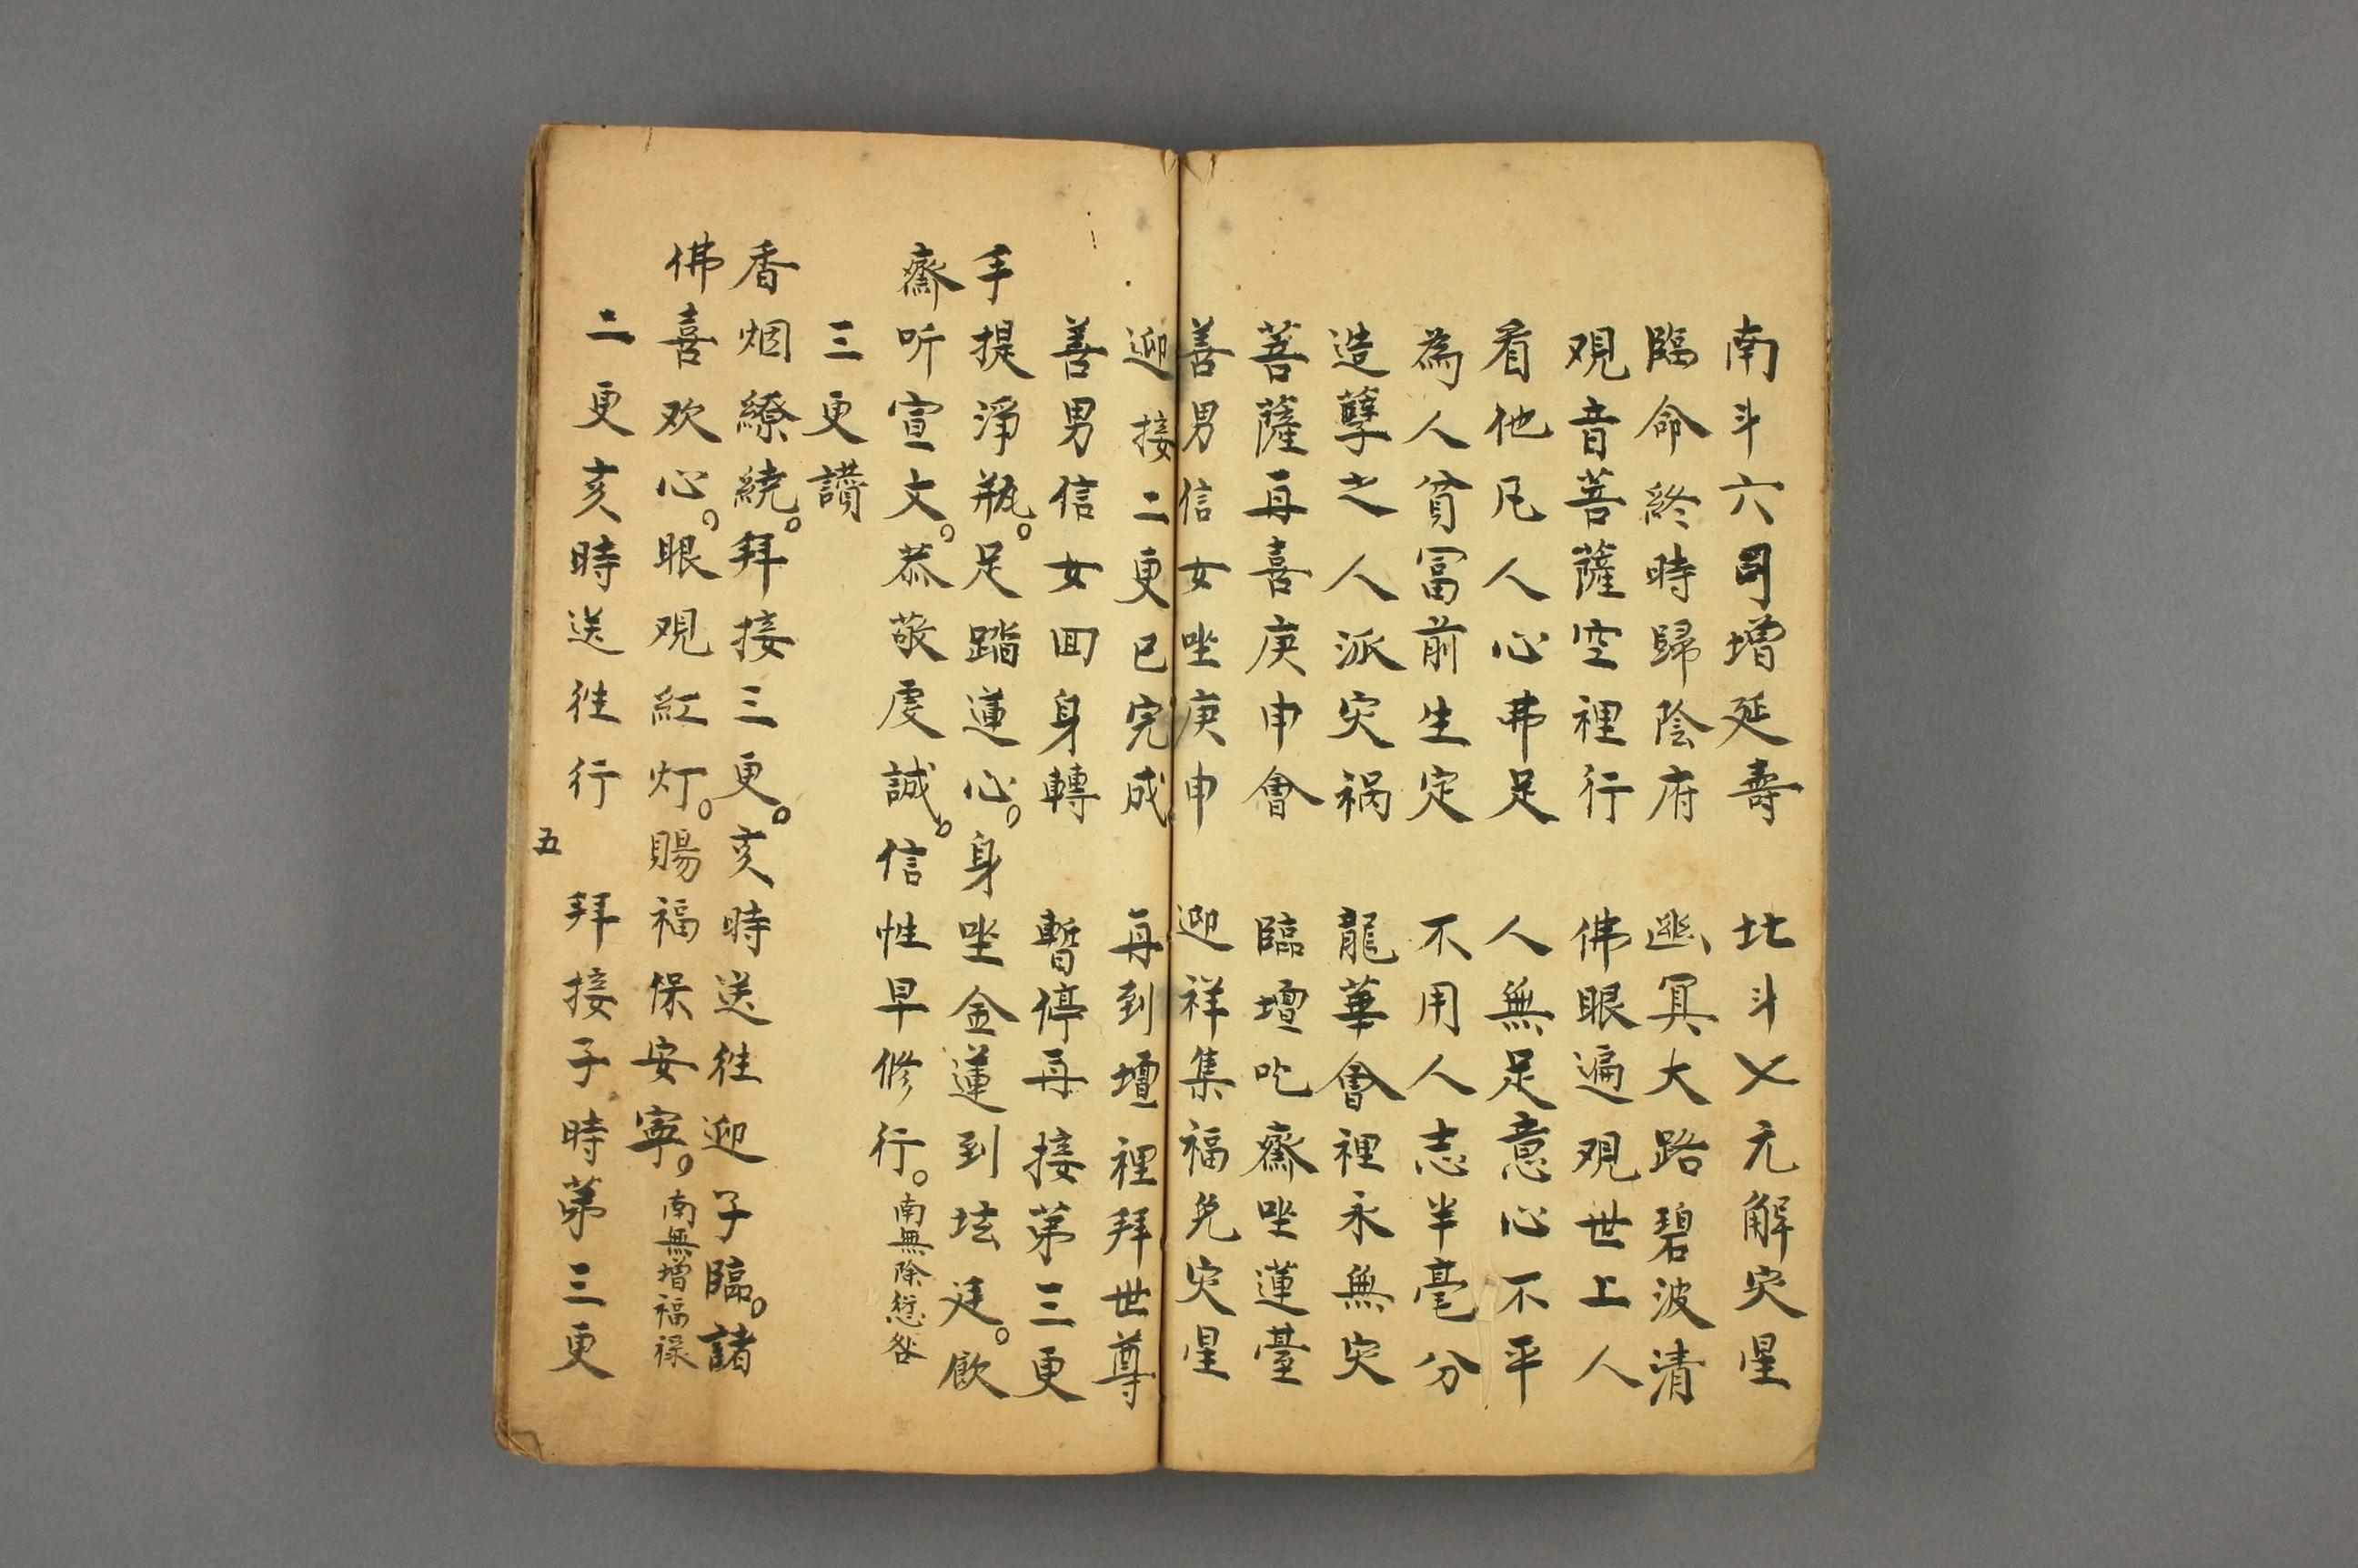 南斗六司增延壽　北斗〤元解灾星
臨命終時歸陰府　幽冥大路碧波清
观音菩薩空裡行　佛眼遍观世上人
看他凡人心弗足　人無足意心不平
為人貧冨前生定　不用人志半毫分
造孽之人派灾祸　龍華會裡永無灾
菩薩再喜庚申會　臨壇吃齋坐蓮臺
善男信女坐庚申　迎祥集福免灾星
迎接二更已完成　再到壇裡拜世尊
善男信女回身轉　暫停再接第三更
手提淨瓶。足踏蓮心。身坐金蓮到坛廷。飲
齋听宣文。恭敬虔誠。信性早修行。南無除愆咎
三更讚
香烟繚繞。拜接三更。亥時送往迎子臨。諸
佛喜欢心。眼观紅灯。賜福保安寧。南無增福禄
二更亥時送往行　拜接子時第三更
五